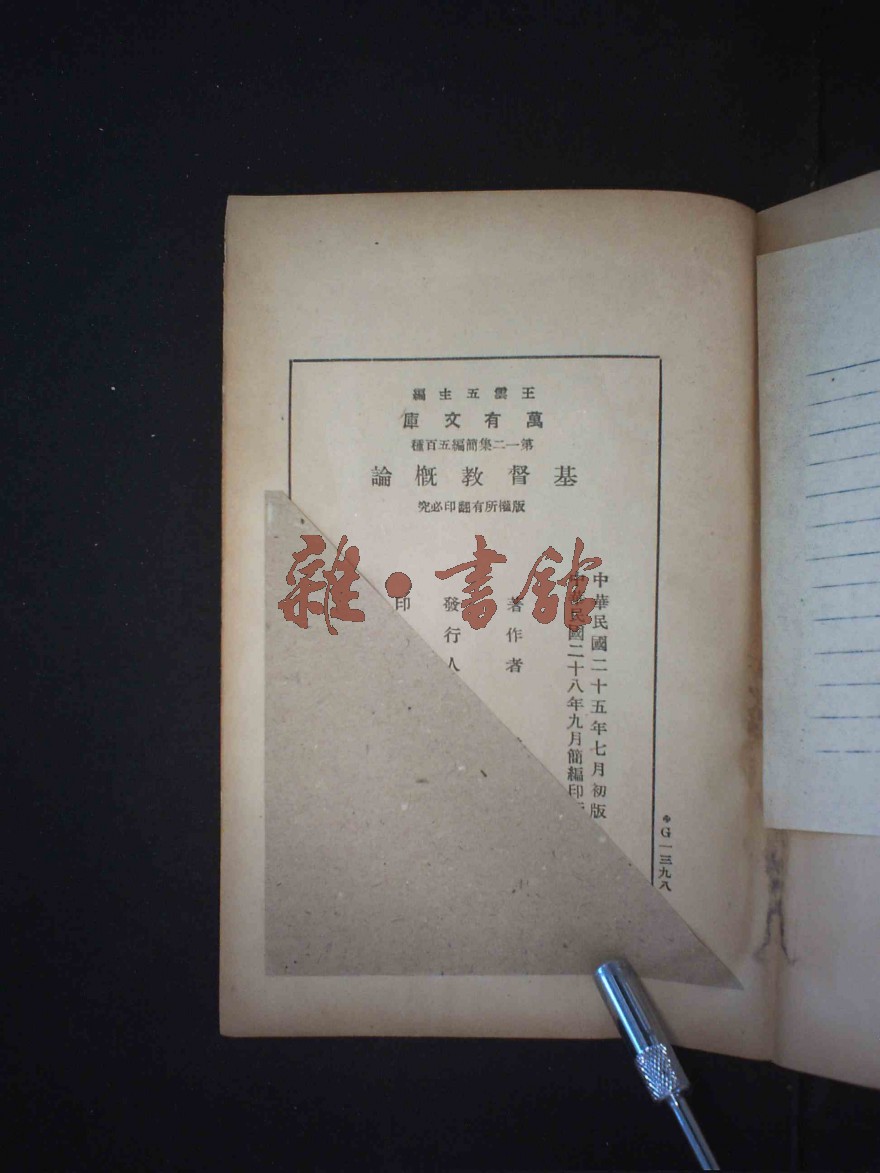 王雲五主編
萬有文庫
第一二集簡編五百種
基督教概論
版權所有翻印必究
中華民國二十五年七月初版
中華民國二十八年九月簡編印
著作者
發行人
印
G一三九八
雜·書館